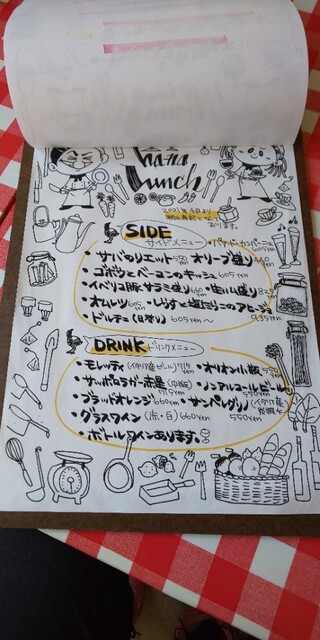 Lunch
あります。
SIDE
サイドメニュー
・サバのリエット 550 オリーブ盛り
・ゴボウとベーコンのキッシュ 605yen
・イベリコ豚とサラミ盛り 660 ・生ハム盛り
・オムレツ ・しらすと塩たらこのアヒージョ
・ドルチェ(日替り) 605yen〜 935yen
DRINK ドリンクメニュー
・モレッティ(伊産ビール)715yen ・オリオン小瓶
・サッポロラガー赤星(中瓶) 715yen ・ノンアルコールビール 550yen
・ブラッドオレンジ 660yen ・サンペレグリノ 550yen
・グラスワイン(赤・白)660yen
・ボトルワインあります。